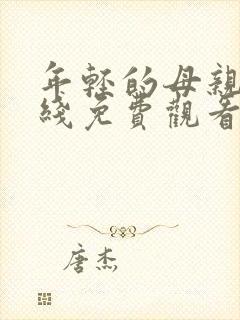 年轻的母親
綫免費觀看
唐杰